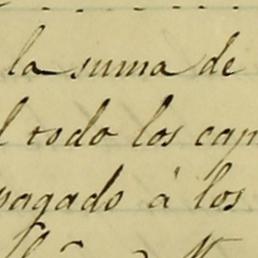 la suma de
todo los
pagado á los